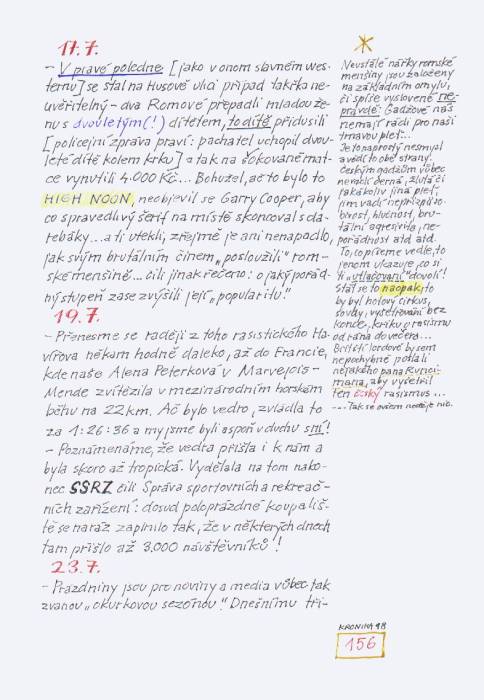 17.7.
- V pravé poledne [jako v onom slavném wes-
ternu] se stal na Husově ulici případ takřka ne-
uvěřitelný - dva Romové přepadli mladou že-
nu s dvouletým (!) dítětem, to dítě přidusili
[policejní zpráva praví: pachatel uchopil dvou-
leté dítě kolem krku] a tak na šokované mat-
ce vynutili 4.000 Kč... Bohužel, ač to bylo to
HIGH NOON, neobjevil se Garry Cooper, aby
co spravedlivý šerif na místě skoncoval s da-
rebáky... a ti utekli, zřejmě je ani nenapadlo,
jak svým brutálním činem „posloužili" rom-
ské menšině... čili jinak řečeno: o jaký pořád-
ný stupeň zase zvýšili její „popularitu!"
19.7.
- Přenesme se raději z toho rasistického Ha-
vířova někam hodně daleko, až do Francie,
kde naše Alena Peterková v Marvejols-
Mende zvítězila v mezinárodním horském
běhu na 22 km. Ač bylo vedro, zvládla to
za 1:26:36 a my jsme byli aspoň v duchu s ní!
- Poznamenáme, že vedra přišla i k nám a
byla skoro až tropická. Vydělala na tom nako-
nec SSRZ čili Správa sportovních a rekreač-
ních zařízení: dosud poloprázdné koupališ-
tě se naráz zaplnilo tak, že v některých dnech
tam přišlo až 3.000 návštěvníků!
23.7.
- Prázdniny jsou pro noviny a media vůbec tak
zvanou „okurkovou sezónou". Dnešnímu tři-
Neustálé nářky romské
menšiny jsou založeny
na základním omylu,
či spíše vysloveně ne-
pravdě: Gadžové nás
nemají rádi pro naši
tmavou pleť...
Je to naprostý nesmysl
a vědí to obě strany.
Českým gadžům vůbec
nevadí černá, žlutá či
jakákoliv jiná pleť,
jim vadí nepřizpůso-
bivost, hlučnost, bru-
tální agresivita, ne-
pořádnost atd. atd.
To, co píšeme vedle, to
jenom ukazuje, co si
ti „utlačovaní" dovolí!
Stát se to naopak, to
by byl hotový cirkus,
soudy, vyšetřování bez
konce, křiku o rasismu
od rána do večera...
Britští lordové by sem
nepochybně poslali
nějakého pana Runci-
mana, aby vyšetřil
ten český rasismus ...
... Tak se ovšem neděje nic.
KRONIKA 98
156